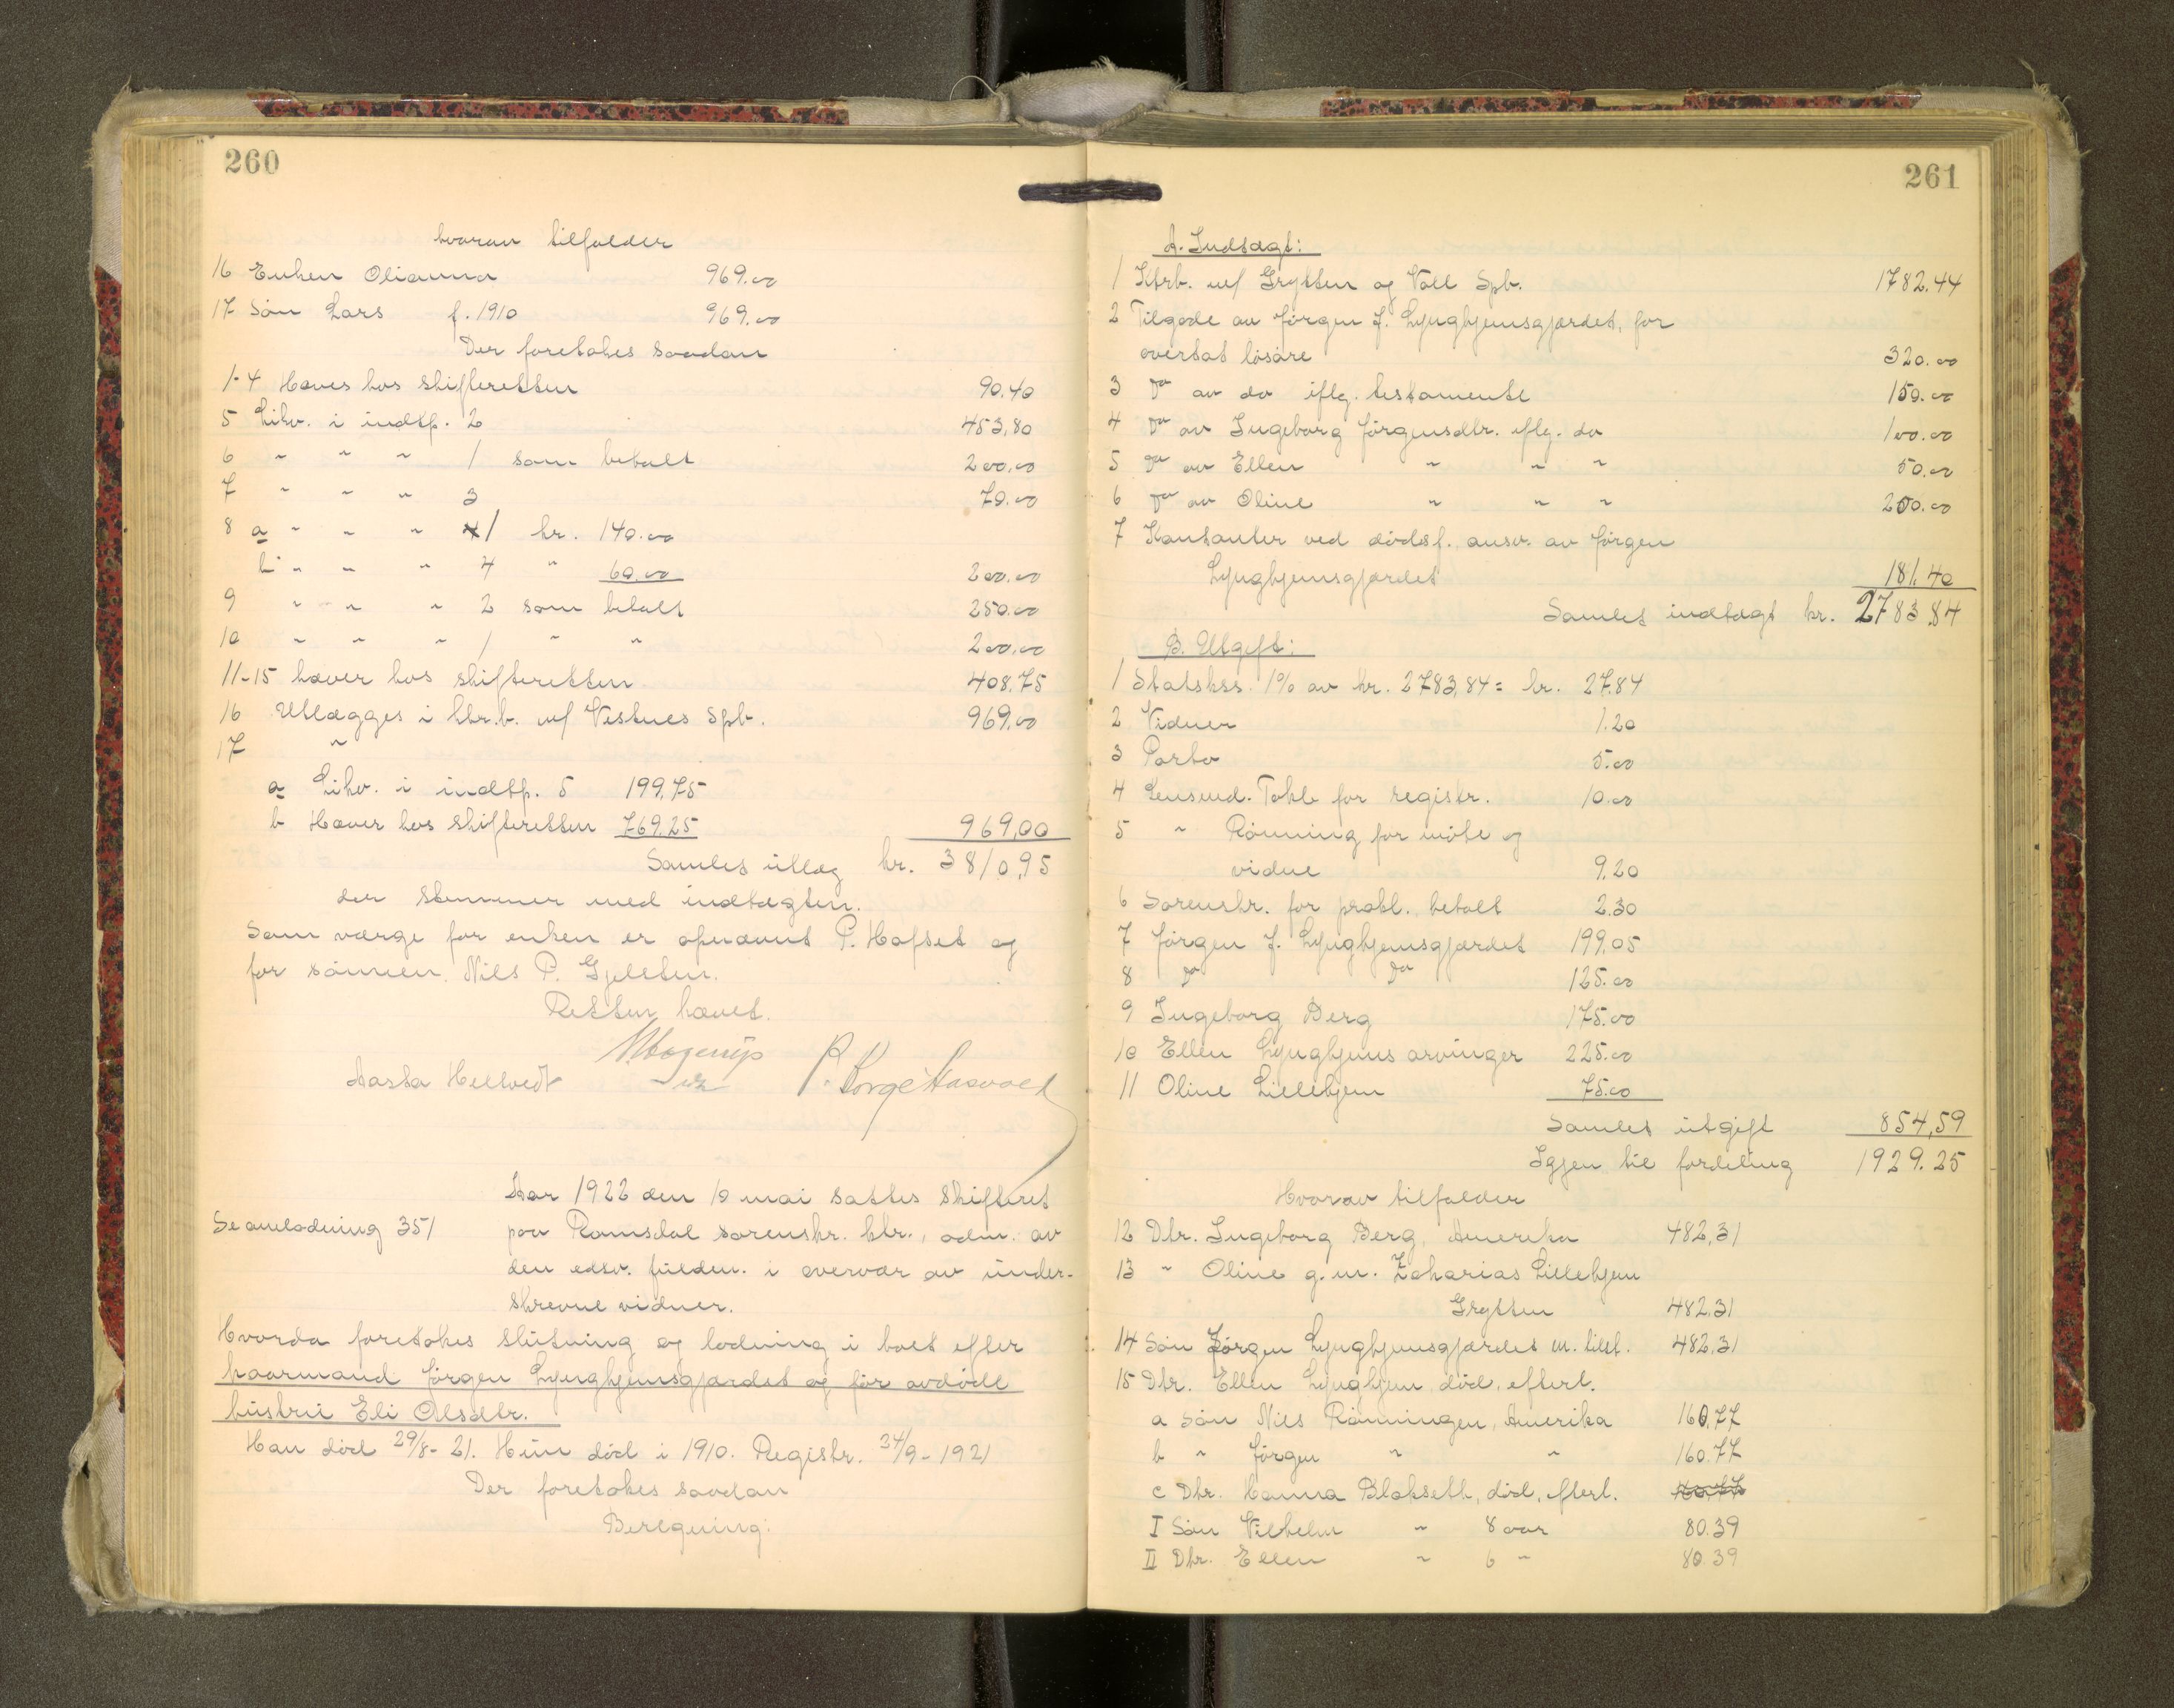 260
hvorav tilfalder
16 Enken Olianna 969.00
17 Søn Lars f. 1910 969.00
Der foretokes saadan
1-4 Haves hos skifteretten 90.40
5 Likv. i indtp. 2 453,80
6 " " " 1 som betalt 200.00
7 " " " 3 70.00
8 a " " " 1 kr. 140.00
b " " " 4 " 60.00 200.00
9 " " " 2 som betalt 250.00
10 " " " 1 " " 200.00
11-15 hæver hos skifteretten 408.75
16 Utlægges i ktr.b. m/ Vestnes Spb. 969.00
17 "
a Likv. i indtp. 5 199.75
b Hæver hos skifteretten 769.25 969,00
Samlet utlæg kr. 3810,95
der stemmer med indtægten.
Som værge for enken er opnævnt P. Hofset og
for sønnen Nils P. Gjelsten.
Retten hævet.
Aasta Hellvedt
Aar 1922 den 10 mai sattes skifteret
Se omlodning 351 paa Romsdal sorenskr. ktr., adm. av
den edsv. fuldm. i overvær av under-
skrevne vidner.
Hvorda foretokes slutning og lodning i boet efter
kaarmand Jørgen Lyngheimsgjærdet og før avdøde
hustru Eli Olsdtr.
Han død 29/8-21. Hun død i 1910. Registr. 24/9-1921
Der foretokes saadan
Beregning:
261
A. Indtægt:
1 Ktrb. m/ Grytten og Voll Spb. 1782.44
2 Tilgode av Jørgen J. Lyngheimsgjærdet, for
overtat løsøre 320.00
3 Do av do iflg. testamente 150.00
4 Do av Ingeborg Jørgensdtr. iflg. do 100.00
5 Do av Ellen " " " 50.00
6 Do av Oline " " " 200.00
7 Kontanter ved dødsf. ansv. av Jørgen
Lyngheimsgjærdet 181.40
Samlet indtægt kr. 2783.84
B. Utgift:
1 Statskss. 1% av kr. 2783,84 = kr. 27.84
2 Vidner 1.20
3 Porto 5.00
4 Lensmd. Tokle for registr. 10.00
5 " Rønning for møte og
vidne 9.20
6 Sorenskr. for prokl. betalt 2.30
7 Jørgen J. Lyngheimsgjærdet 199.05
8 Do Do 125.00
9 Ingeborg Berg 175.00
10 Ellen Lyngheims arvinger 225.00
11 Oline Lillehjem 75.00
Samlet utgift 854,59
Igjen til fordeling 1929.25
Hvorav tilfalder
12 Dtr. Ingeborg Berg, Amerika 482,31
13 " Oline g.m. Zakarias Lillehjem
Grytten 482.31
14 Søn Jørgen Lyngheimsgjærdet m. tilst. 482.31
15 Dtr. Ellen Lynghjem, død, efterl.
a Søn Nils Rønningen, Amerika 160,77
b " Jørgen " " 160.77
c Dtr. Hanna Blakseth, død, efterl.
I Søn Vilhelm " 8 aar 80.39
II Dtr. Ellen " 6 " 80.39